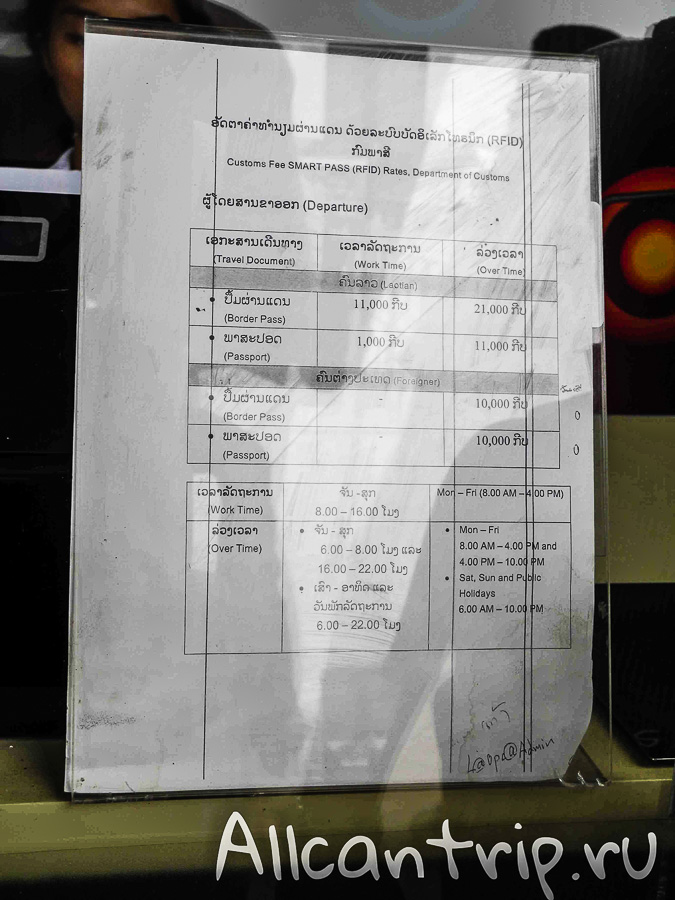 ອັດຕາຄ່າທຳນຽມຜ່ານແດນ ດ້ວຍລະບົບບັດອີເລັກໂທຣນິກ (RFID)
ກົມພາສີ
Customs Fee SMART PASS (RFID) Rates, Department of Customs
ຜູ້ໂດຍສານຂາອອກ (Departure)
ເອກະສານເດີນທາງ ເວລາລັດຖະການ ລ່ວງເວລາ
(Travel Document) (Work Time) (Over Time)
ຄົນລາວ (Laotian)
• ປຶ້ມຜ່ານແດນ 11,000 ກີບ 21,000 ກີບ
(Border Pass)
• ພາສະປອດ 1,000 ກີບ 11,000 ກີບ
(Passport)
ຄົນຕ່າງປະເທດ (Foreigner)
• ປຶ້ມຜ່ານແດນ - 10,000 ກີບ 0
(Border Pass)
• ພາສະປອດ - 10,000 ກີບ 0
(Passport)
ເວລາລັດຖະການ ຈັນ -ສຸກ Mon – Fri (8.00 AM – 4.00 PM)
(Work Time) 8.00 – 16.00 ໂມງ
ລ່ວງເວລາ • ຈັນ - ສຸກ • Mon – Fri
(Over Time) 6.00 – 8.00 ໂມງ ແລະ 8.00 AM – 4.00 PM and
16.00 – 22.00 ໂມງ 4.00 PM – 10.00 PM
• ເສົາ - ອາທິດ ແລະ • Sat, Sun and Public
ວັນພັກລັດຖະການ Holidays
6.00 – 22.00 ໂມງ 6.00 AM – 10.00 PM
Allcantrip.ru